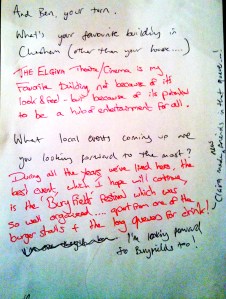 And Ben, your turn.
What's your favourite building in
Chesham (other than your house....)
THE ELGIVA Theatre/Cinema is my
favorite building not because of it's
look & feel - but because of its potential
to be a hub of entertainment for all.
What local events coming up are
you looking forward to the most?
During all the years we've lived here, the
best event, which I hope will continue,
is the 'Bury Fields' Festival which was
so well organised.... apart from one of the
burger stalls & the big queues for drink!
I'm looking forward
to Buryfields too!
new
(Claire making friends in that queue...!)